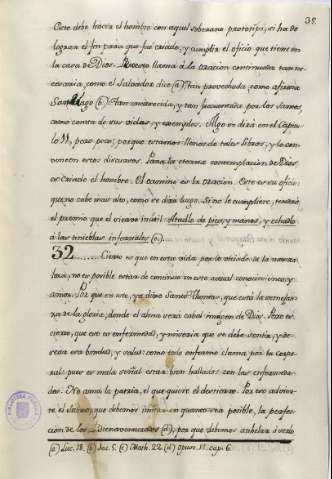 38
Este debe hacer el hombre con aquel soberano prototipo, si ha de
lograr el fin para que fue criado, y cumplir el oficio que tiene en
la casa de Dios. llama á la oracion continuada tan ne-
cesaria, como el Salvador dice (a) tan provechosa, como afirma
Santiago (b) tan encarecida, y tan frecuentada por los Santos,
como consta de sus vidas, y exemplos. Algo se dirá en el Capitu-
lo 11, pero poco; porque estamos llenos de tales libros, y lo con-
vencen estos discursos. Para la eterna contemplacion de Dios
es criado el hombre: El camino es la oracion. Este es su oficio:
que no cabe mas alto, como se dirá luego. Si no le cumpliere, tendrá
el premio que el siervo inutil: Atadle de pies, y manos, y echadlo
á las tinieblas infernales (c).
32 Cierto es que en esta vida por lo debido de la natura-
leza, no es posible estar de continuo en este actual conocimiento, y
amor. Por que en este, ya dixo Santo Thomas, que está la semejan-
za de la gloria, donde el alma verá cabal imagen de Dios. Pero es
cierto, que esto es enfermedad, y miseria que se debe sentir, y de-
sear otra bondad, y salud: como todo enfermo clama por la corpo-
ral: pues es mala señal estar bien hallados con las enfermeda-
des. No ama la patria, el que quiere el destierro. Por eso advier-
te el Santo, que debemos imitar en quanto sea posible, la perfec-
cion de los Bienaventurados (d), por que debemos anhelar á verlo
(a) Luc. 18. (b) Jac. 5. (c) Math. 22. (d) Opusc. 11. cap. 6.